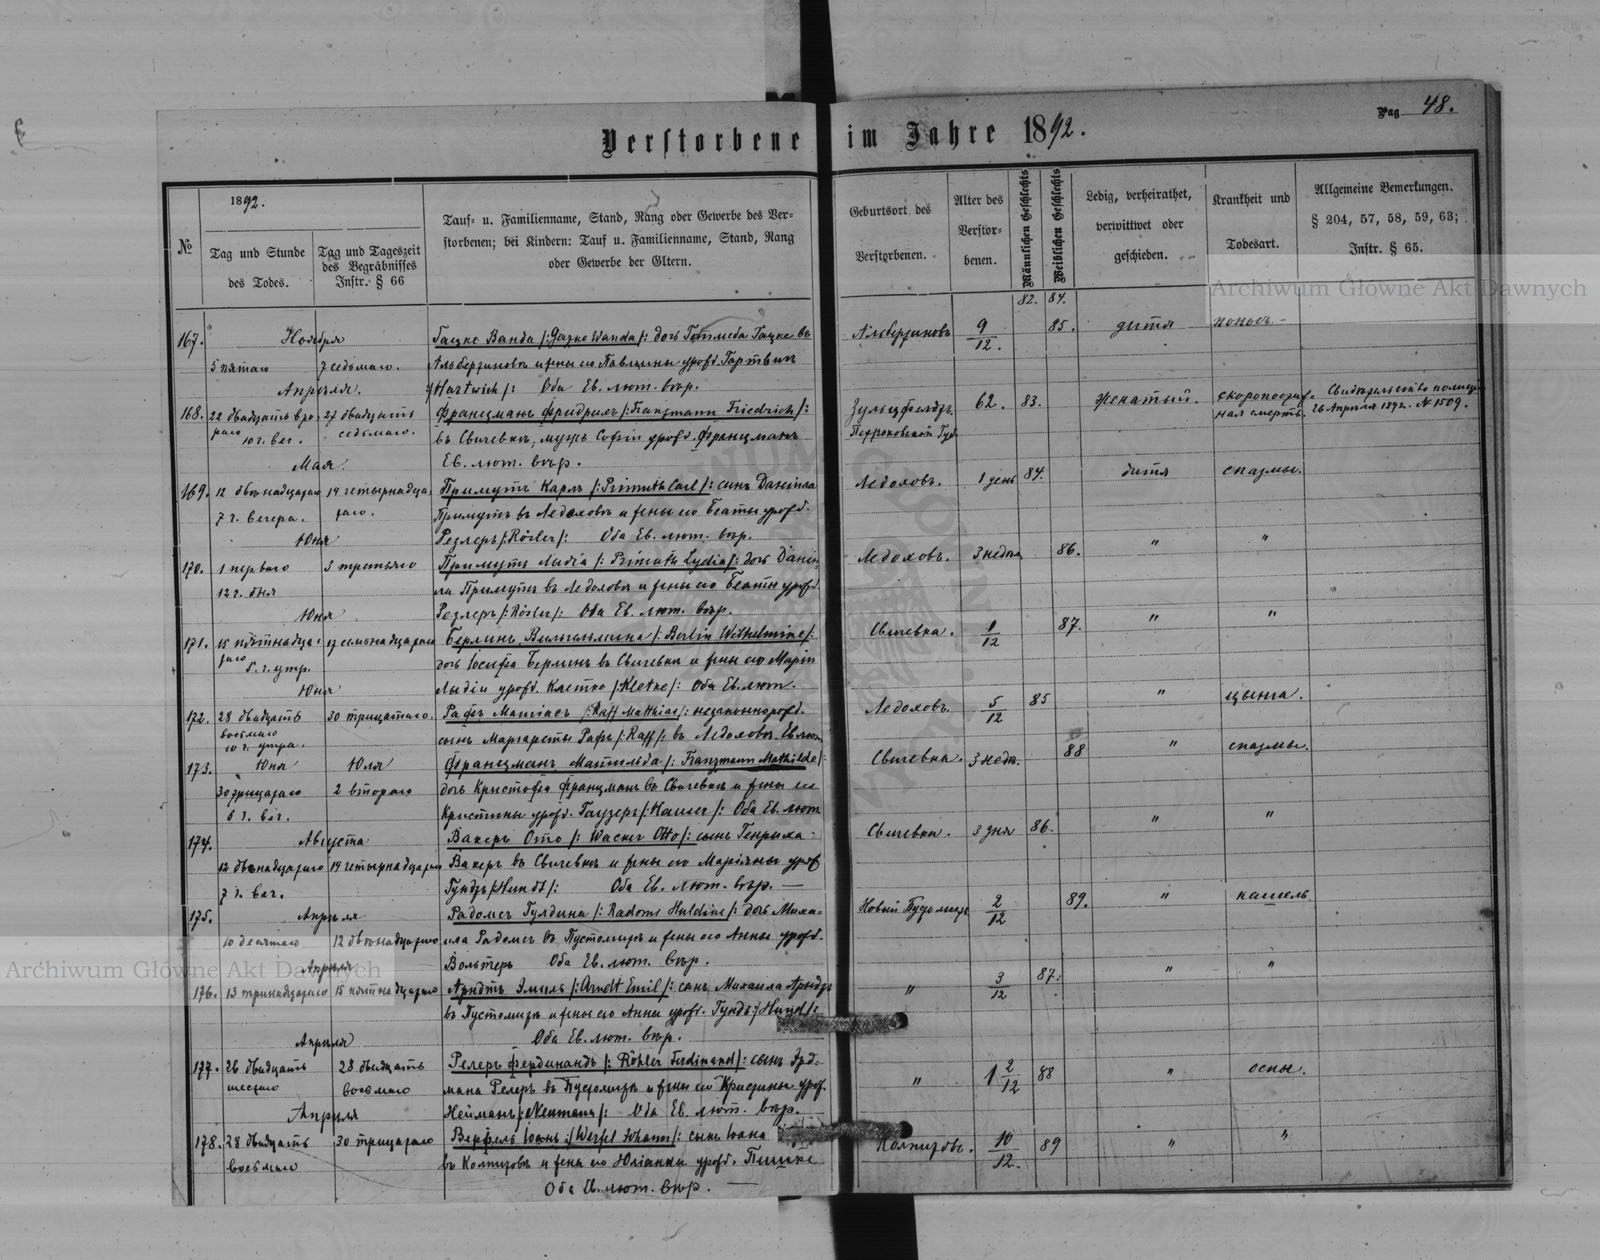 Pag 48.
Verstorbene im Jahre 1892.
1892.
№
Tag und Stunde
des Todes.
Tag und Tageszeit
des Begräbnisses
Instr. § 66
Tauf- u. Familienname, Stand, Rang oder Gewerbe des Ver-
storbenen; bei Kindern: Tauf u. Familienname, Stand, Rang
oder Gewerbe der Eltern.
Geburtsort des
Verstorbenen.
Alter des
Verstor-
benen.
Männlichen Geschlechts
Weiblichen Geschlechts
Ledig, verheirathet,
verwittwet oder
geschieden.
Krankheit und
Todesart.
Allgemeine Bemerkungen.
§ 204, 57, 58, 59, 63;
Instr. § 65.
Archiwum Główne Akt Dawnych
82. 84.
167. Ноября
5 пятаго 7 седьмаго.
Гацке Ванда /: Gazke Wanda /: дочь Готлиба Гацке въ
и жены его Павлины урожд. Гартвигъ
/: Hartwich /: Оба Ев. лют. вѣр.
9/12. 85. дитя поносъ
168. Апрѣля.
22 двадцать вто
раго 10 ч. веч.
27 двадцать
седьмаго.
Францманъ Фридрихъ /: Franzmann Friedrich /:
въ Свичевкѣ, мужъ Софіи урожд. Францманъ
Ев. лют. вѣр.
Петроковской Губ.
62. 83. женатый. скоропостиж-
ная смерть.
Свидѣтельство полиціи
26 Апрѣля 1892. № 1509.
169. Мая.
12 двѣнадцатаго 14 четырнадца
7 ч. вечера. таго.
Примутъ Карлъ /: Primuth Carl /: сынъ Даніила
Примутъ въ Ледоховѣ и жены его Беаты урожд.
Резлеръ /: Rösler /: Оба Ев. лют. вѣр.
Ледоховъ. 1 день 84. дитя спазмы.
170. Юня
1 перваго 3 третьяго
12 ч. дня
Примутъ Лидіа /: Primuth Lydia /: дочь Дани
ла Примутъ въ Ледоховѣ и жены его Беаты урожд.
Резлеръ /: Rösler /: Оба Ев. лют. вѣр.
Ледоховъ. 3 недѣли 86. " "
171. Юня
15 пятнадца-
таго 5. ч. утр.
17 семьнадцатаго
Берлинъ Вильгельмина /: Berlin Wilhelmine /:
дочь Іосифа Берлинъ въ Свичевкѣ и жены его Маріи
Лидіи урожд. Клетке /: Kletke /: Оба Ев. лют.
Свичевка. 1/12 87. " "
172. Юня
28 двадцать
восьмаго
10 ч. утра.
30 тридцатаго.
Рафъ Матіасъ /: Raff Mathias /: незаконнорожд.
сынъ Маргареты Рафъ /: Raff /: въ Ледоховѣ. Ев. лют.
Ледоховъ. 5/12 85 " цынга.
173. Юня Юля
30 тридцатаго 2 втораго
6 ч. веч.
Францманъ Матильда /: Franzmann Mathilde /:
дочь Кристофа Францманъ въ Свичевкѣ и жены его
Кристины урожд. Гаузеръ /: Hauser /: Оба Ев. лют.
Свичевка. 3 недѣл. 88 " спазмы.
174. Августа
12 двѣнадцатаго 14 четырнадцатаго
7 ч. веч.
Вакеръ Отто /: Wacker Otto /: сынъ Генриха
Вакеръ въ Свичевкѣ и жены его Маріанны урож
Гундъ /: Hundt /: Оба Ев. лют. вѣр. —
Свичевка. 3 дня 86. " "
175. Апрѣля
10 десятаго 12 двѣнадцатаго
Радомсъ Гулдина /: Radoms Huldine /: дочь Миха-
ила Радомсъ въ Пустомытѣ и жены его Анны урожд.
Вольтеръ Оба Ев. лют. вѣр.
2/12 89. " кашель
Archiwum Główne Akt Dawnych
176. Апрѣля
13 тринадцатаго 15 пятнадцатаго
Арндтъ Эмиль /: Arndt Emil /: сынъ Михаила Арндтъ
въ Пустомытѣ и жены его Анны урожд. Гундъ /: Hund /:
Оба Ев. лют. вѣр.
" 3/12 87. " "
177. Апрѣля
26 двадцать
шестаго
28 двадцать
восьмаго
Релеръ Фердинандъ /: Röhler Ferdinand /: сынъ Эрд-
мана Релеръ въ Пустомытѣ и жены его Кристины урож.
Нейманъ /: Neumann /: Оба Ев. лют. вѣр.
" 1 2/12 88 " оспы.
178. Апрѣля
28 двадцать
восьмаго
30 тридцатаго
Верфель Іоанъ /: Werfel Johann /: сынъ Іоана
въ Колпитовѣ и жены его Юліанны урожд. Пишке
Оба Ев. лют. вѣр. —
Колпитовъ. 10/12. 89 " "